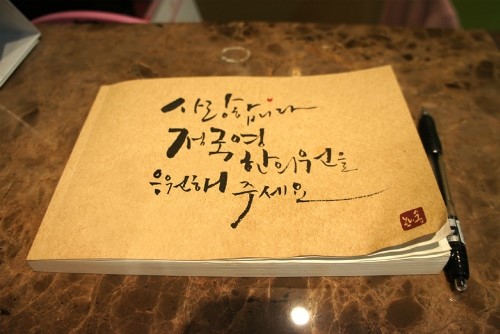 사랑합니다
정국영
한의우선을
응원해 주세요